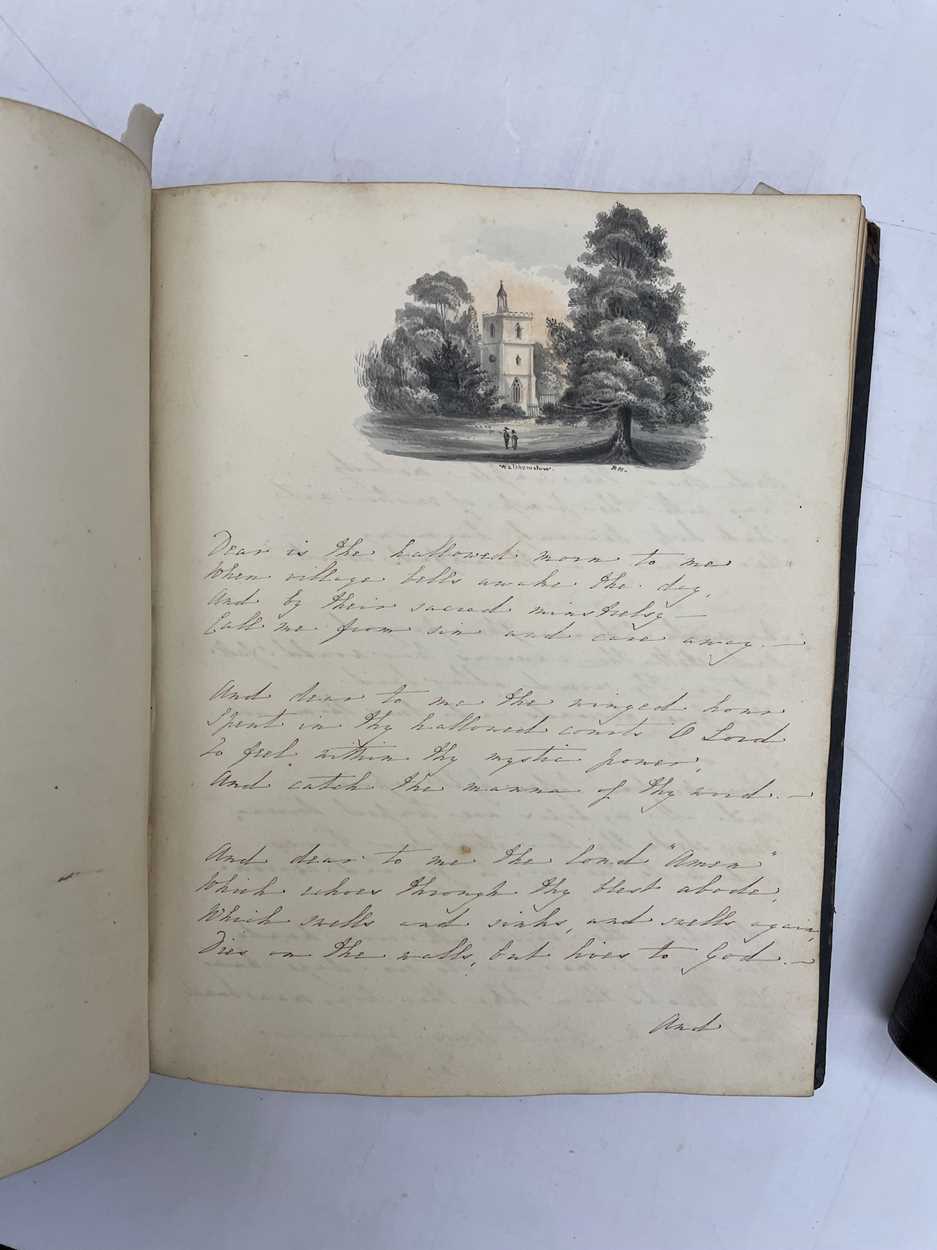 Walthamstow.
Dear is the hallowed morn to me
When village bells awake the day,
And by their sacred minstrelsy —
Call me from sin and care away. —
And dear to me the winged hour
Spent in thy hallowed courts O Lord
To feel within thy mystic power,
And catch the manna of thy word. —
And dear to me the loud "Amen"
Which echoes through thy blest abode,
Which swells and sinks, and swells again,
Dies on the walls, but lives to God. —
And